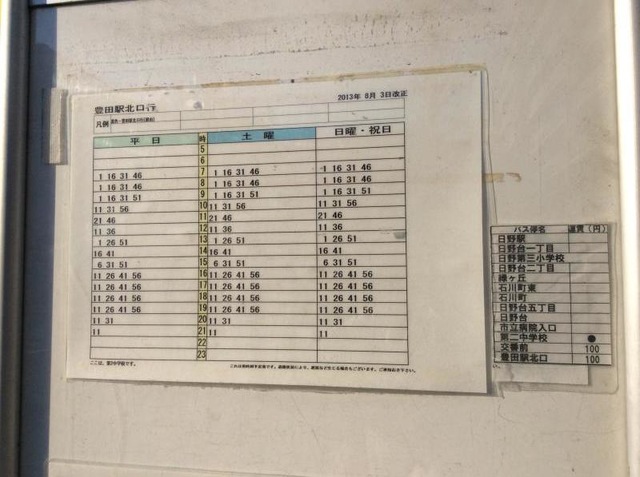 豊田駅北口行
2013年 8月 3日改正
凡例
平 日 時 土 曜 日曜・祝日
5
6
1 16 31 46 7 1 16 31 46 1 16 31 46
1 16 31 46 8 1 16 31 46 1 16 31 46
1 16 31 51 9 1 16 31 51 1 16 31 51
11 31 56 10 11 31 56 11 31 56
21 46 11 21 46 21 46
11 36 12 11 36 11 36
1 26 51 13 1 26 51 1 26 51
16 41 14 16 41 16 41
6 31 51 15 6 31 51 6 31 51
11 26 41 56 16 11 26 41 56 11 26 41 56
11 26 41 56 17 11 26 41 56 11 26 41 56
11 26 41 56 18 11 26 41 56 11 26 41 56
11 26 41 56 19 11 26 41 56 11 26 41 56
11 31 20 11 31 11 31
11 21 11 11
22
23
ここは、第2中学校です。
バス停名 運賃（円）
日野駅
日野台一丁目
日野第三小学校
日野台二丁目
緑ヶ丘
石川町東
石川町
日野台五丁目
日野台
市立病院入口
第二中学校 ●
交番前 100
豊田駅北口 100